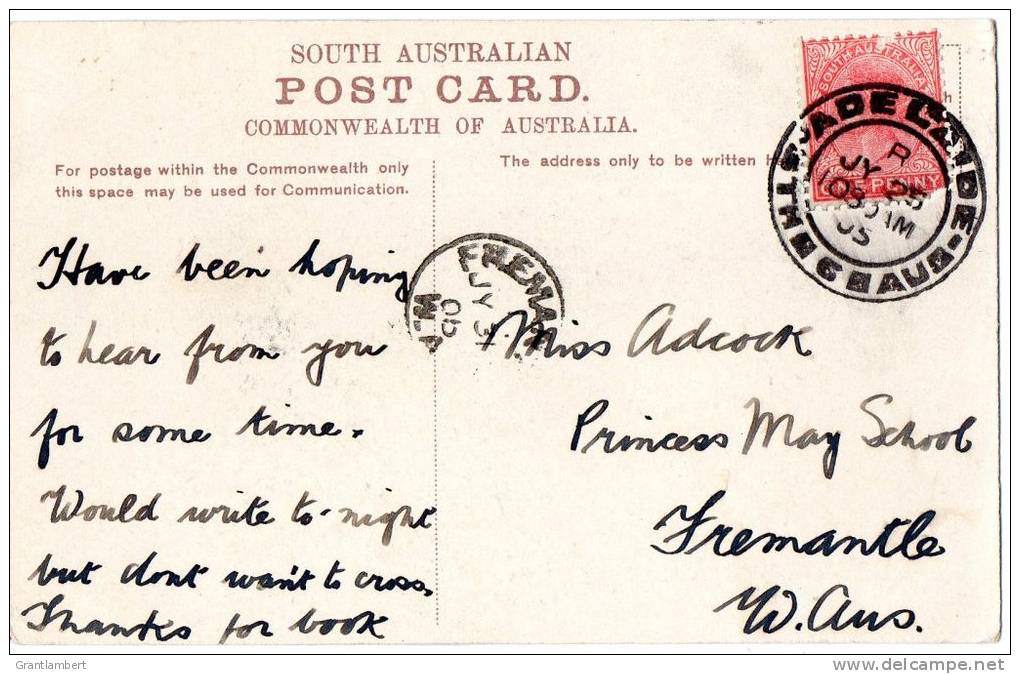 SOUTH AUSTRALIAN
POST CARD.
COMMONWEALTH OF AUSTRALIA.
For postage within the Commonwealth only
this space may be used for Communication.
The address only to be written
SOUTH AUSTRALIA
PENNY
ADELAIDE
STH AUS
6
R
JY 25
1030 AM
05
FREMAN
JY 31
05
W.A
Have been hoping
to hear from you
for some time.
Would write to-night
but dont want to cross.
Thanks for book
Miss Adcock
Princess May School
Fremantle
W. Aus.
Grantlambert
delcampe.net